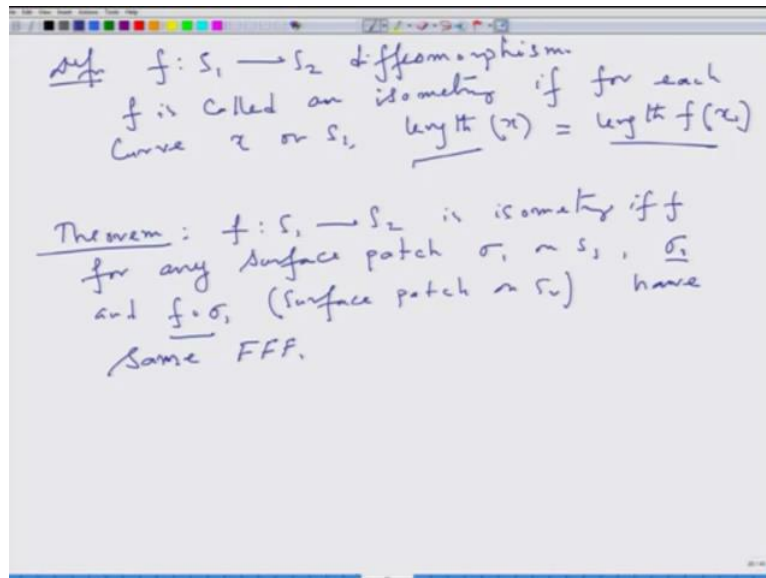 Defn f : S₁ → S₂ diffeomorphism.
f is called an isometry if for each
Curve x on S₁, length (x) = length f(x)
Theorem : f : S₁ → S₂ is isometry iff
for any surface patch σ₁ on S₁, σ₁
and f∘σ₁ (surface patch on S₂) have
same FFF.